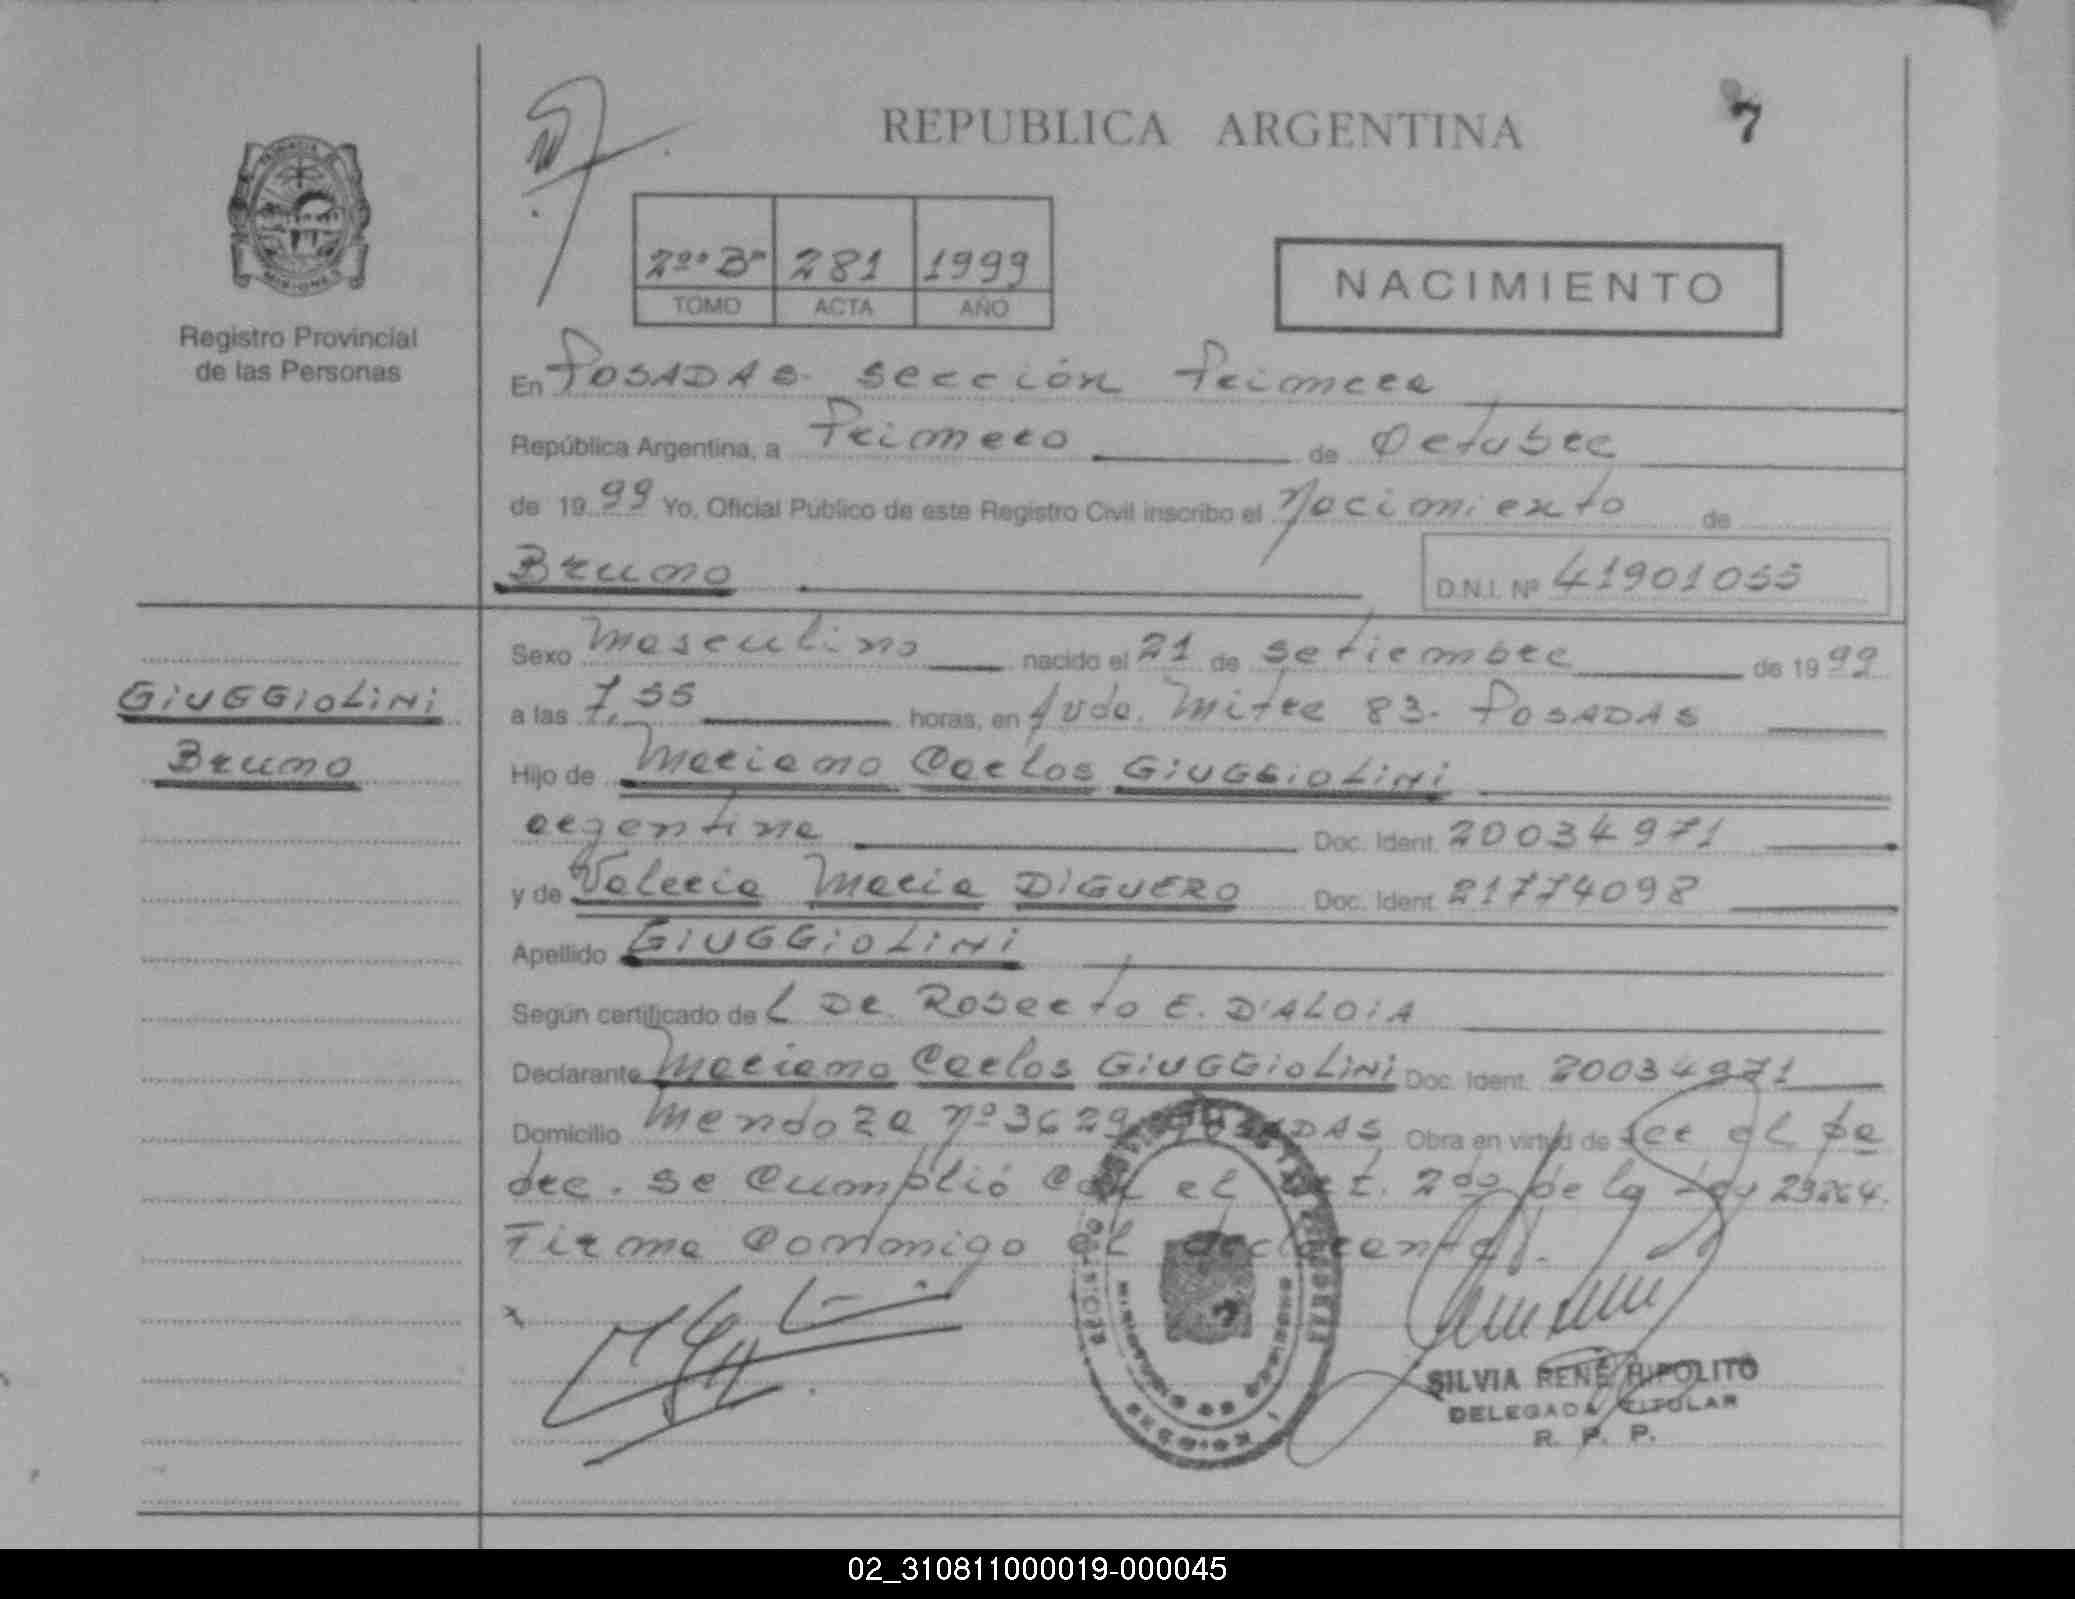 REPUBLICA ARGENTINA
7
2do. Bn 281 1999
TOMO ACTA AÑO
NACIMIENTO
MISIONES
Registro Provincial
de las Personas
En POSADAS. Sección Primera
República Argentina, a Primero de Octubre
de 1999 Yo, Oficial Público de este Registro Civil inscribo el Nacimiento de
Bruno D.N.I. Nº 41901055
Sexo Masculino nacido el 21 de Setiembre de 1999
GIUGGIOLINI
a las 7,55 horas, en Avda. Mitre 83. POSADAS
Bruno
Hijo de Mariano Carlos GIUGGIOLINI
argentina Doc. Ident. 20034971
y de Valeria Maria DIGUERO Doc. Ident. 21774098
Apellido GIUGGIOLINI
Según certificado de L DR. Roberto E. D'ALOIA
Declarante Mariano Carlos GIUGGIOLINI Doc. Ident. 20034971
Domicilio Mendoza nº 3629 POSADAS Obra en virtud de ser el pa
dre. Se Cumplió Con el Art. 2do de la Ley
Firma Conmigo el declarante.
SILVIA RENÉ HIPOLITO
DELEGADA TITULAR
R. P. P.
02_310811000019-000045